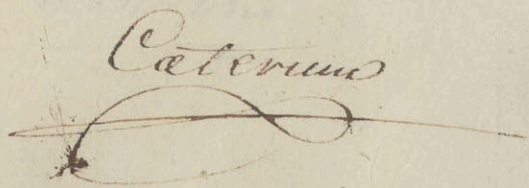 Cœterum